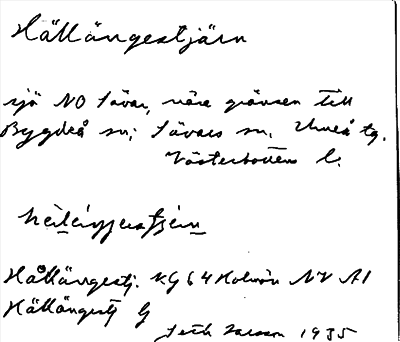 Hällängestjärn
sjö NO Sävar, nära gränsen till
Bygdeå sn; Sävars sn, Umeå tg.
Västerbottens l.
Hällängestj. KG 64 Holmön NV A1
Hällängestj G
1935